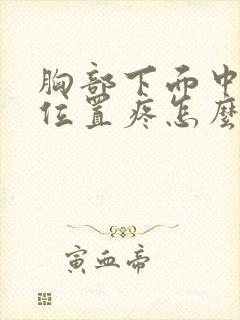 胸部下面中
位置疼怎麼
寅血帝